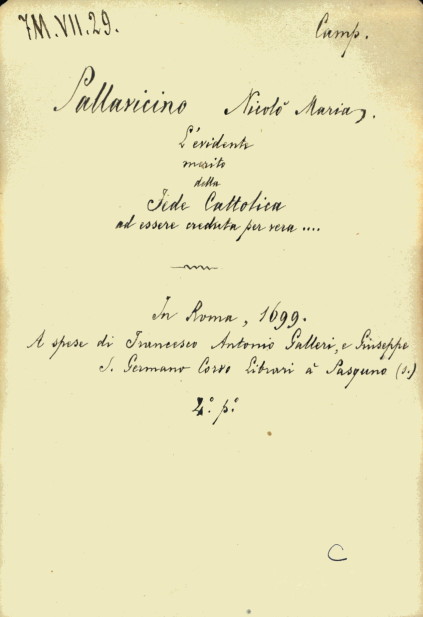 7M.VII.29.
Camp.
Pallavicino Nicolò Maria.
L'evidente
merito
della
Fede Cattolica
ad essere creduta per vera ....
In Roma, 1699.
A spese di Francesco Antonio Galleri, e Giuseppe
S. Germano Corvo Librari à Pasquino (s.)
4.° p.°
C